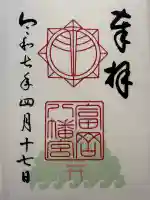 奉拝
富岡
八幡宮
令和七年四月十七日